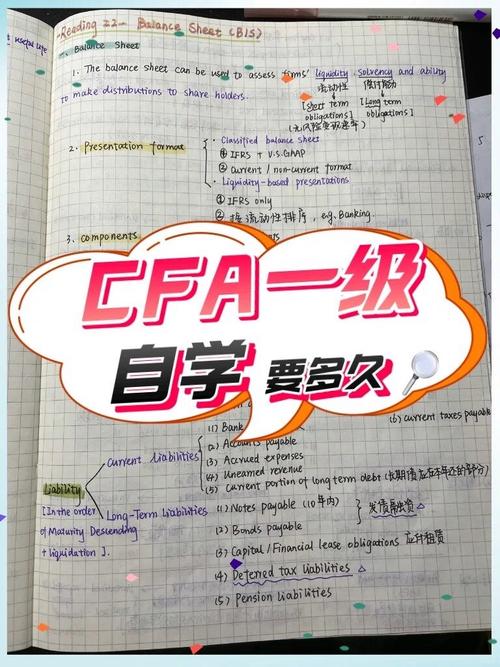 useful life
Reading 22- Balance Sheet (B/S)
. Balance Sheet
1. The balance sheet can be used to assess firms' liquidity, solvency and ability
流动性 偿付能力
to make distributions to share holders.
[Short term obligations] [Long term obligations]
(无风险变现速率)
2. Presentation format
• Classified balance sheet
① IFRS + U.S.GAAP
② current / non-current format
• Liquidity-based presentations
① IFRS only
② 按流动性排序, eg. Banking.
3. components
CFA一级
自学 要多久
(1) Bank
(6) current taxes payable
(2) Accounts payable
Current Liabilities
(3) Accrued expenses
(4) Unearned revenue
(5) Current portion of long term debt
Liability
[In the order of Maturity Descending + liquidation].
Long-Term Liabilities
(1) Notes payable (10年内)
发债融资
(2) Bonds payable
(3) Capital/Financial lease obligations 应付租赁
(4) Deferred tax liabilities
(5) Pension Liabilities